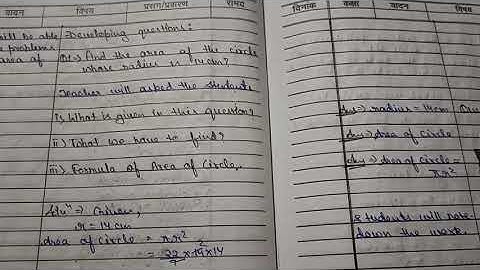 वादन विषय प्रसंग/प्रकरण समय
will be able
problems
area of
Developing questions:
Find the area of the circle
whose radius is 14cm?
Teacher will asked the students
i) What is given in this question?
ii) What we have to find?
iii) Formula of Area of Circle.
Solun => Given,
r = 14cm
area of circle = πr²
= 22/7 × 14 × 14
2
दिनांक कक्षा वादन विषय
Ans => radius = 14cm
Ans => Area of circle
Ans => Area of circle =
πr²
Students will note
down the work.